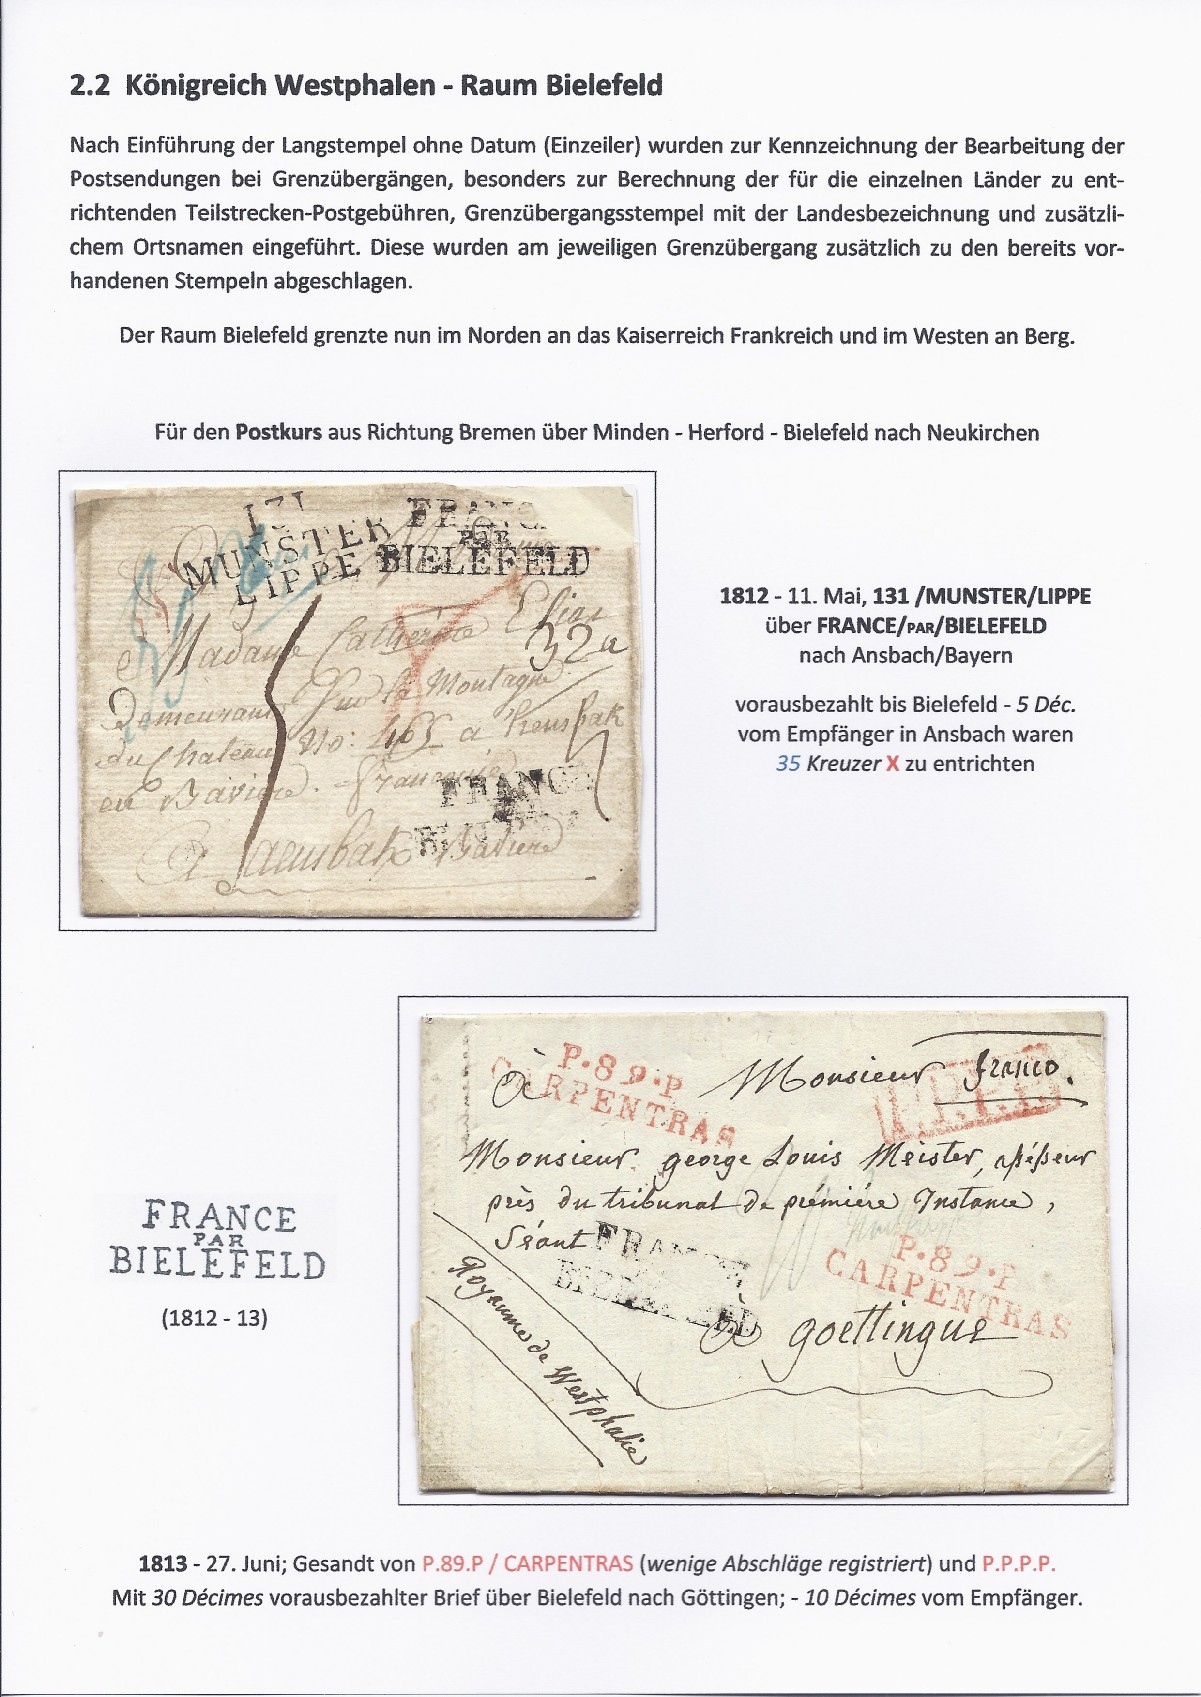 2.2 Königreich Westphalen - Raum Bielefeld
Nach Einführung der Langstempel ohne Datum (Einzeiler) wurden zur Kennzeichnung der Bearbeitung der
Postsendungen bei Grenzübergängen, besonders zur Berechnung der für die einzelnen Länder zu ent-
richtenden Teilstrecken-Postgebühren, Grenzübergangsstempel mit der Landesbezeichnung und zusätzli-
chem Ortsnamen eingeführt. Diese wurden am jeweiligen Grenzübergang zusätzlich zu den bereits vor-
handenen Stempeln abgeschlagen.
Der Raum Bielefeld grenzte nun im Norden an das Kaiserreich Frankreich und im Westen an Berg.
Für den Postkurs aus Richtung Bremen über Minden - Herford - Bielefeld nach Neukirchen
131
MUNSTER
LIPPE
FRANC
PAR
BIELEFELD
Madame Catherine Elias
32a
Demeurant Sur la Montagne
du Chateau No: 465 a
en Baviere.
FRANCE
A Baviere
1812 - 11. Mai, 131 /MUNSTER/LIPPE
über FRANCE/PAR/BIELEFELD
nach Ansbach/Bayern
vorausbezahlt bis Bielefeld - 5 Déc.
vom Empfänger in Ansbach waren
35 Kreuzer X zu entrichten
P.89.P
CARPENTRAS
à Monsieur franco.
P.P.P.P.
Monsieur george Louis Meister, assesseur
près du tribunal de première Instance,
Séant
FRANCE
BIELEFELD
P.89.P
CARPENTRAS
à goettingue
Royaume de Westphalie
FRANCE
PAR
BIELEFELD
(1812 - 13)
1813 - 27. Juni; Gesandt von P.89.P / CARPENTRAS (wenige Abschläge registriert) und P.P.P.P.
Mit 30 Décimes vorausbezahlter Brief über Bielefeld nach Göttingen; - 10 Décimes vom Empfänger.